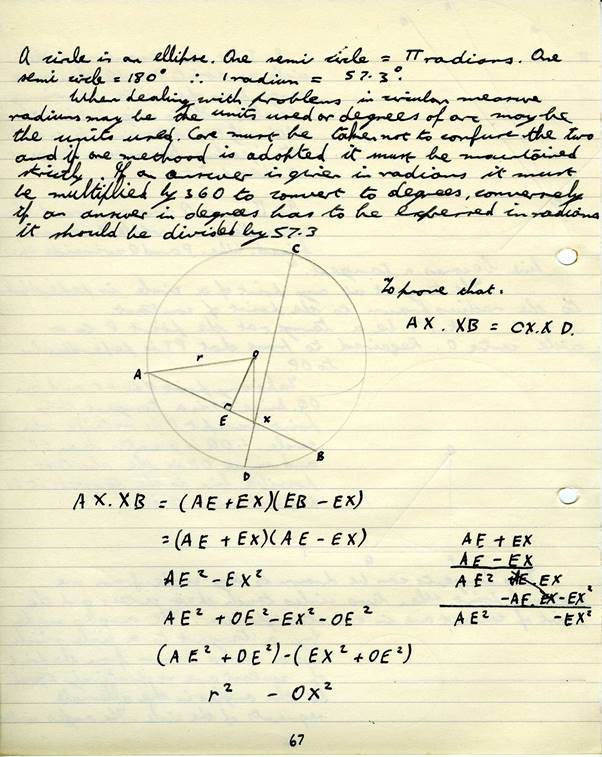 A circle is an ellipse. One semi circle = π radians. One
semi circle = 180° ∴ 1 radian = 57.3°.
When dealing with problems in circular measure
radians may be the units used or degrees of arc may be
the units used. Care must be taken not to confuse the two
and if one method is adopted it must be maintained
strictly. If an answer is given in radians it must
be multiplied by 360 to convert to degrees, conversely
if an answer in degrees has to be expressed in radians
it should be divided by 57.3
C
To prove that.
AX. XB = CX. XD.
r
O
A
r
E
X
B
D
AX. XB = (AE+EX)(EB-EX)
= (AE + EX)(AE - EX)
AE + EX
AE - EX
AE² - EX²
AE² AE. EX
-AE. EX - EX²
AE² + OE² - EX² - OE²
AE² - EX²
(AE² + OE²) - (EX² + OE²)
r² - OX²
67